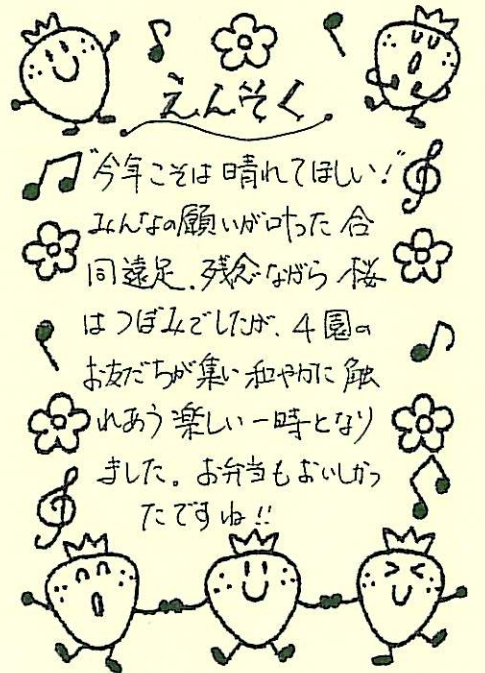 えんそく
"今年こそは晴れてほしい！"
みんなの願いが叶った合
同遠足．残念ながら桜
はつぼみでしたが、4園の
お友だちが集い和やかに触
れあう楽しい一時となり
ました。お弁当もおいしかっ
たですね!!